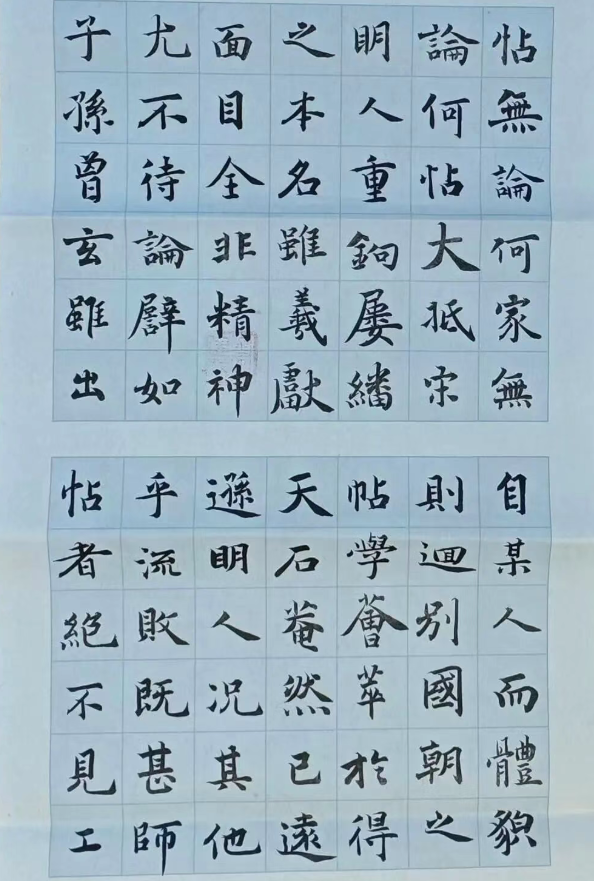 帖無論何家無
論何帖大抵宋
明人重鉤屢繙
之本名雖羲獻
面目全非精神
尤不待論譬如
子孫曾玄雖出
自某人而體貌
則逈別國朝之
帖學薈萃於得
天石菴然已遠
遜明人况其他
乎流敗既甚師
帖者絕不見工